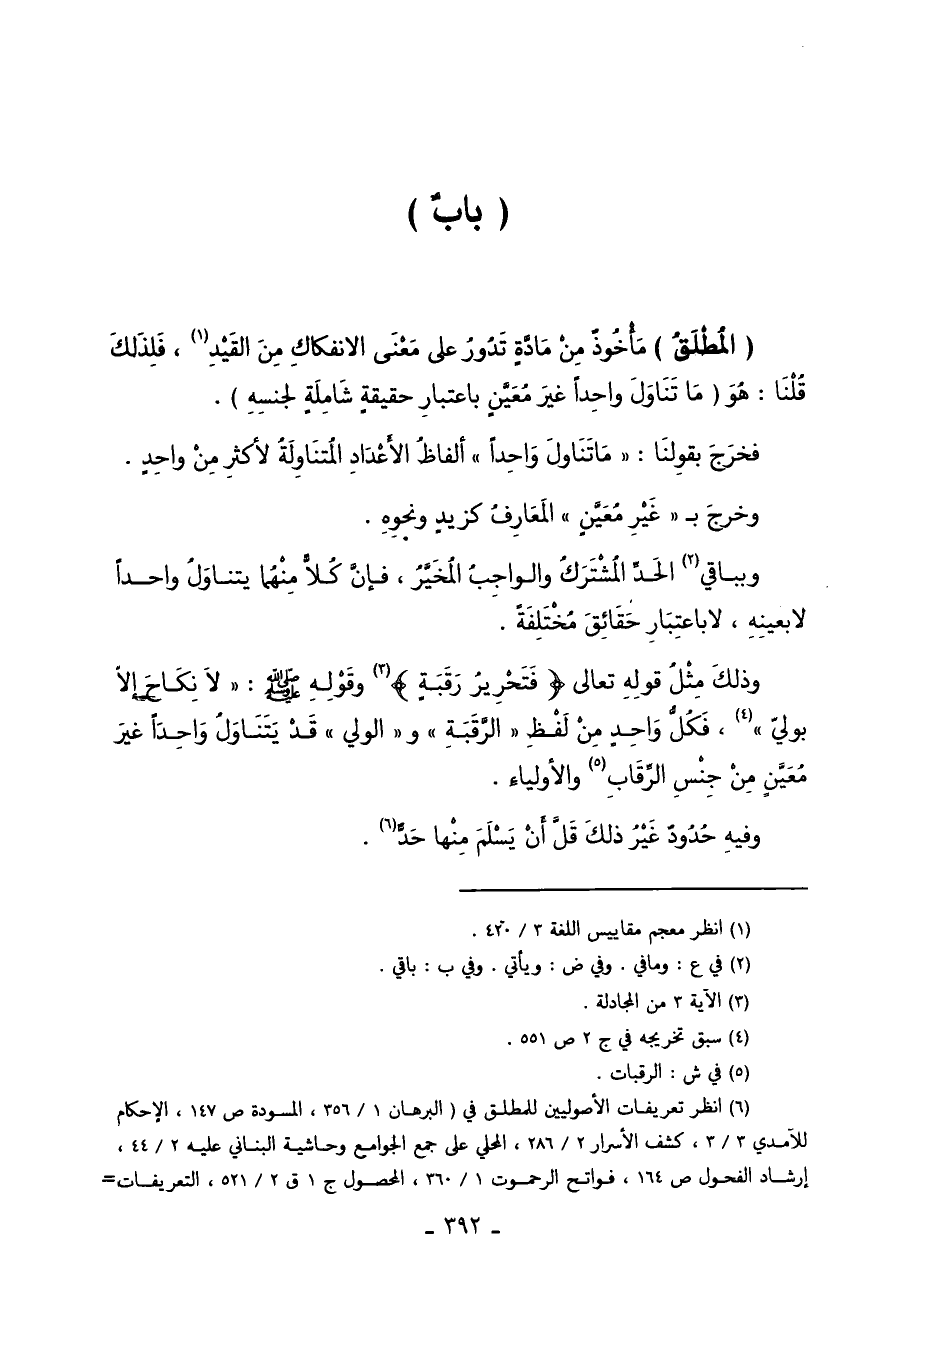 ( بابٌ )
( المُطْلَقُ ) مَأْخُوذٌ مِنْ مَادَّةٍ تَدُورُ على مَعْنَى الانفكاكِ مِنَ القَيْدِ(١) ، فَلِذَلكَ
قُلْنَا : هُوَ ( مَا تَنَاوَلَ واحِداً غيرَ مُعَيَّنٍ باعتبارِ حقيقةٍ شَامِلَةٍ لجنسِهِ ) .
فخرَجَ بقولِنَا : « مَاتَنَاولَ وَاحِداً » ألفاظُ الأَعْدَادِ المُتنَاوِلَةُ لأكثرِ مِنْ واحِدٍ .
وخرجَ بـ « غَيْرِ مُعَيَّنٍ » المَعَارِفُ كزيدٍ ونحوِهِ .
وببـاقي(٢) الحَدِّ المُشْتَرَكُ والـواجِبُ المُخَيَّرُ ، فـإنَّ كُـلاًّ مِنْهُما يتنـاوَلُ واحـداً
لابعينِهِ ، لاباعتِبَارِ حَقَائِقَ مُخْتَلِفَةً .
وذلكَ مِثْلُ قولِهِ تعالى ﴿ فَتَحْرِيرُ رَقَبَـةٍ ﴾(٣) وقَوْلِـهِ ﷺ : « لاَ نِكَـاحَ إلاَّ
بوليّ »(٤) ، فَكُلُّ وَاحِـدٍ مِنْ لَفْـظِ « الرَّقَبَـةِ » و « الولي » قَـدْ يَتَنَـاوَلُ وَاحِـدَاً غيرَ
مُعَيَّنٍ مِنْ جِنْسِ الرِّقَابِ(٥) والأولياءِ .
وفيهِ حُدُودٌ غَيْرُ ذلكَ قَلَّ أَنْ يَسْلَمَ مِنْها حَدٌّ(٦) .
(١) انظر معجم مقاييس اللغة ٣ / ٤٢٠ .
(٢) في ع : ومافي . وفي ض : ويأتي . وفي ب : باقي .
(٣) الآية ٣ من المجادلة .
(٤) سبق تخريجه في ج ٢ ص ٥٥١ .
(٥) في ش : الرقبات .
(٦) انظر تعريفـات الأصوليين للمطلـق في ( البرهـان ١ / ٣٥٦ ، المسودة ص ١٤٧ ، الإحكام
للآمدي ٣ / ٣ ، كشف الأسرار ٢ / ٢٨٦ ، المحلي على جمع الجوامع وحاشية البناني عليه ٢ / ٤٤ ،
إرشـاد الفحول ص ١٦٤ ، فـواتـح الرحمـوت ١ / ٣٦٠ ، المحصـول ج ١ ق ٢ / ٥٢١ ، التعريفـات=
ـ ٣٩٢ ـ